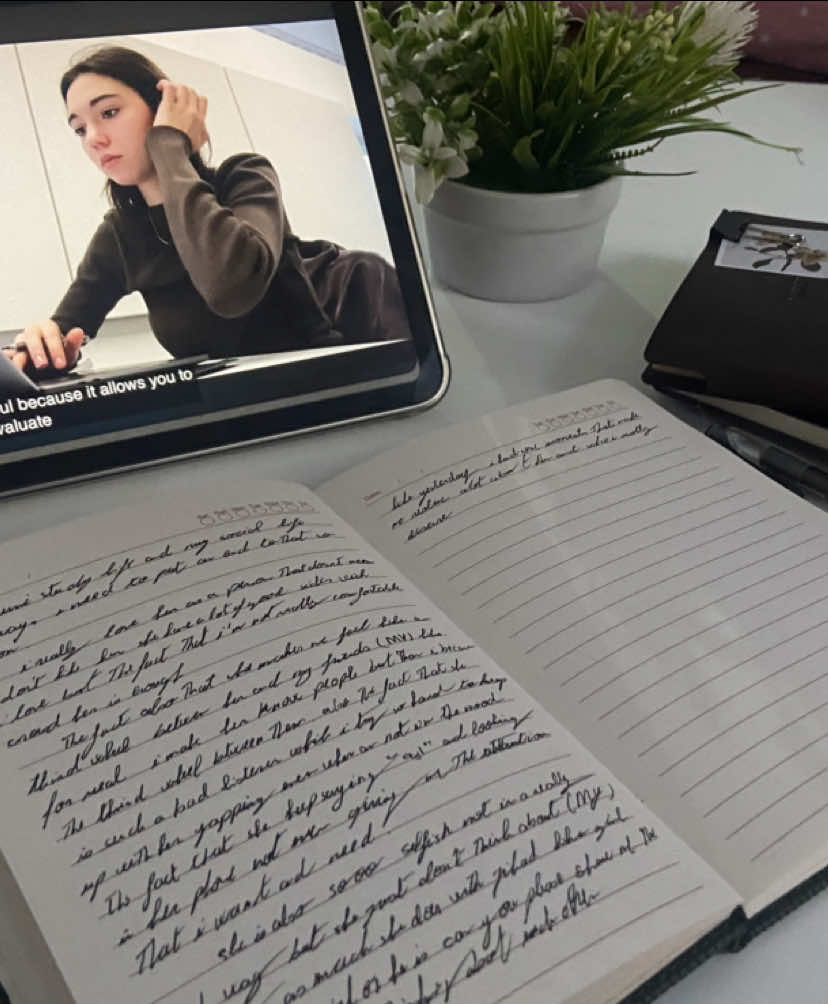 ul because it allows you to
valuate
like yesterday i had moments that made
me realise alot about her and what i really
deserve.
study life and my social life
i need to put an end to that
i really love her as a person that doesn't mean
don't like her she have a lot of good sides wich
i love but the fact that i'm not really comfortable
around her is enough
The fact also that she makes me feel like a
third wheel between her and my friends (MY) like
for real i make her know people but then i become
The third wheel between them also the fact that she
is such a bad listener while i try so hard to keep
up with her yapping even when am not in the mood
The fact that she keep saying " " and looking
in her phone not even giving me the attention
That i want and need.
she is also soooo selfish not in a really
way but she just don't think about (My)
as much she does with
is can you please show me the
each other